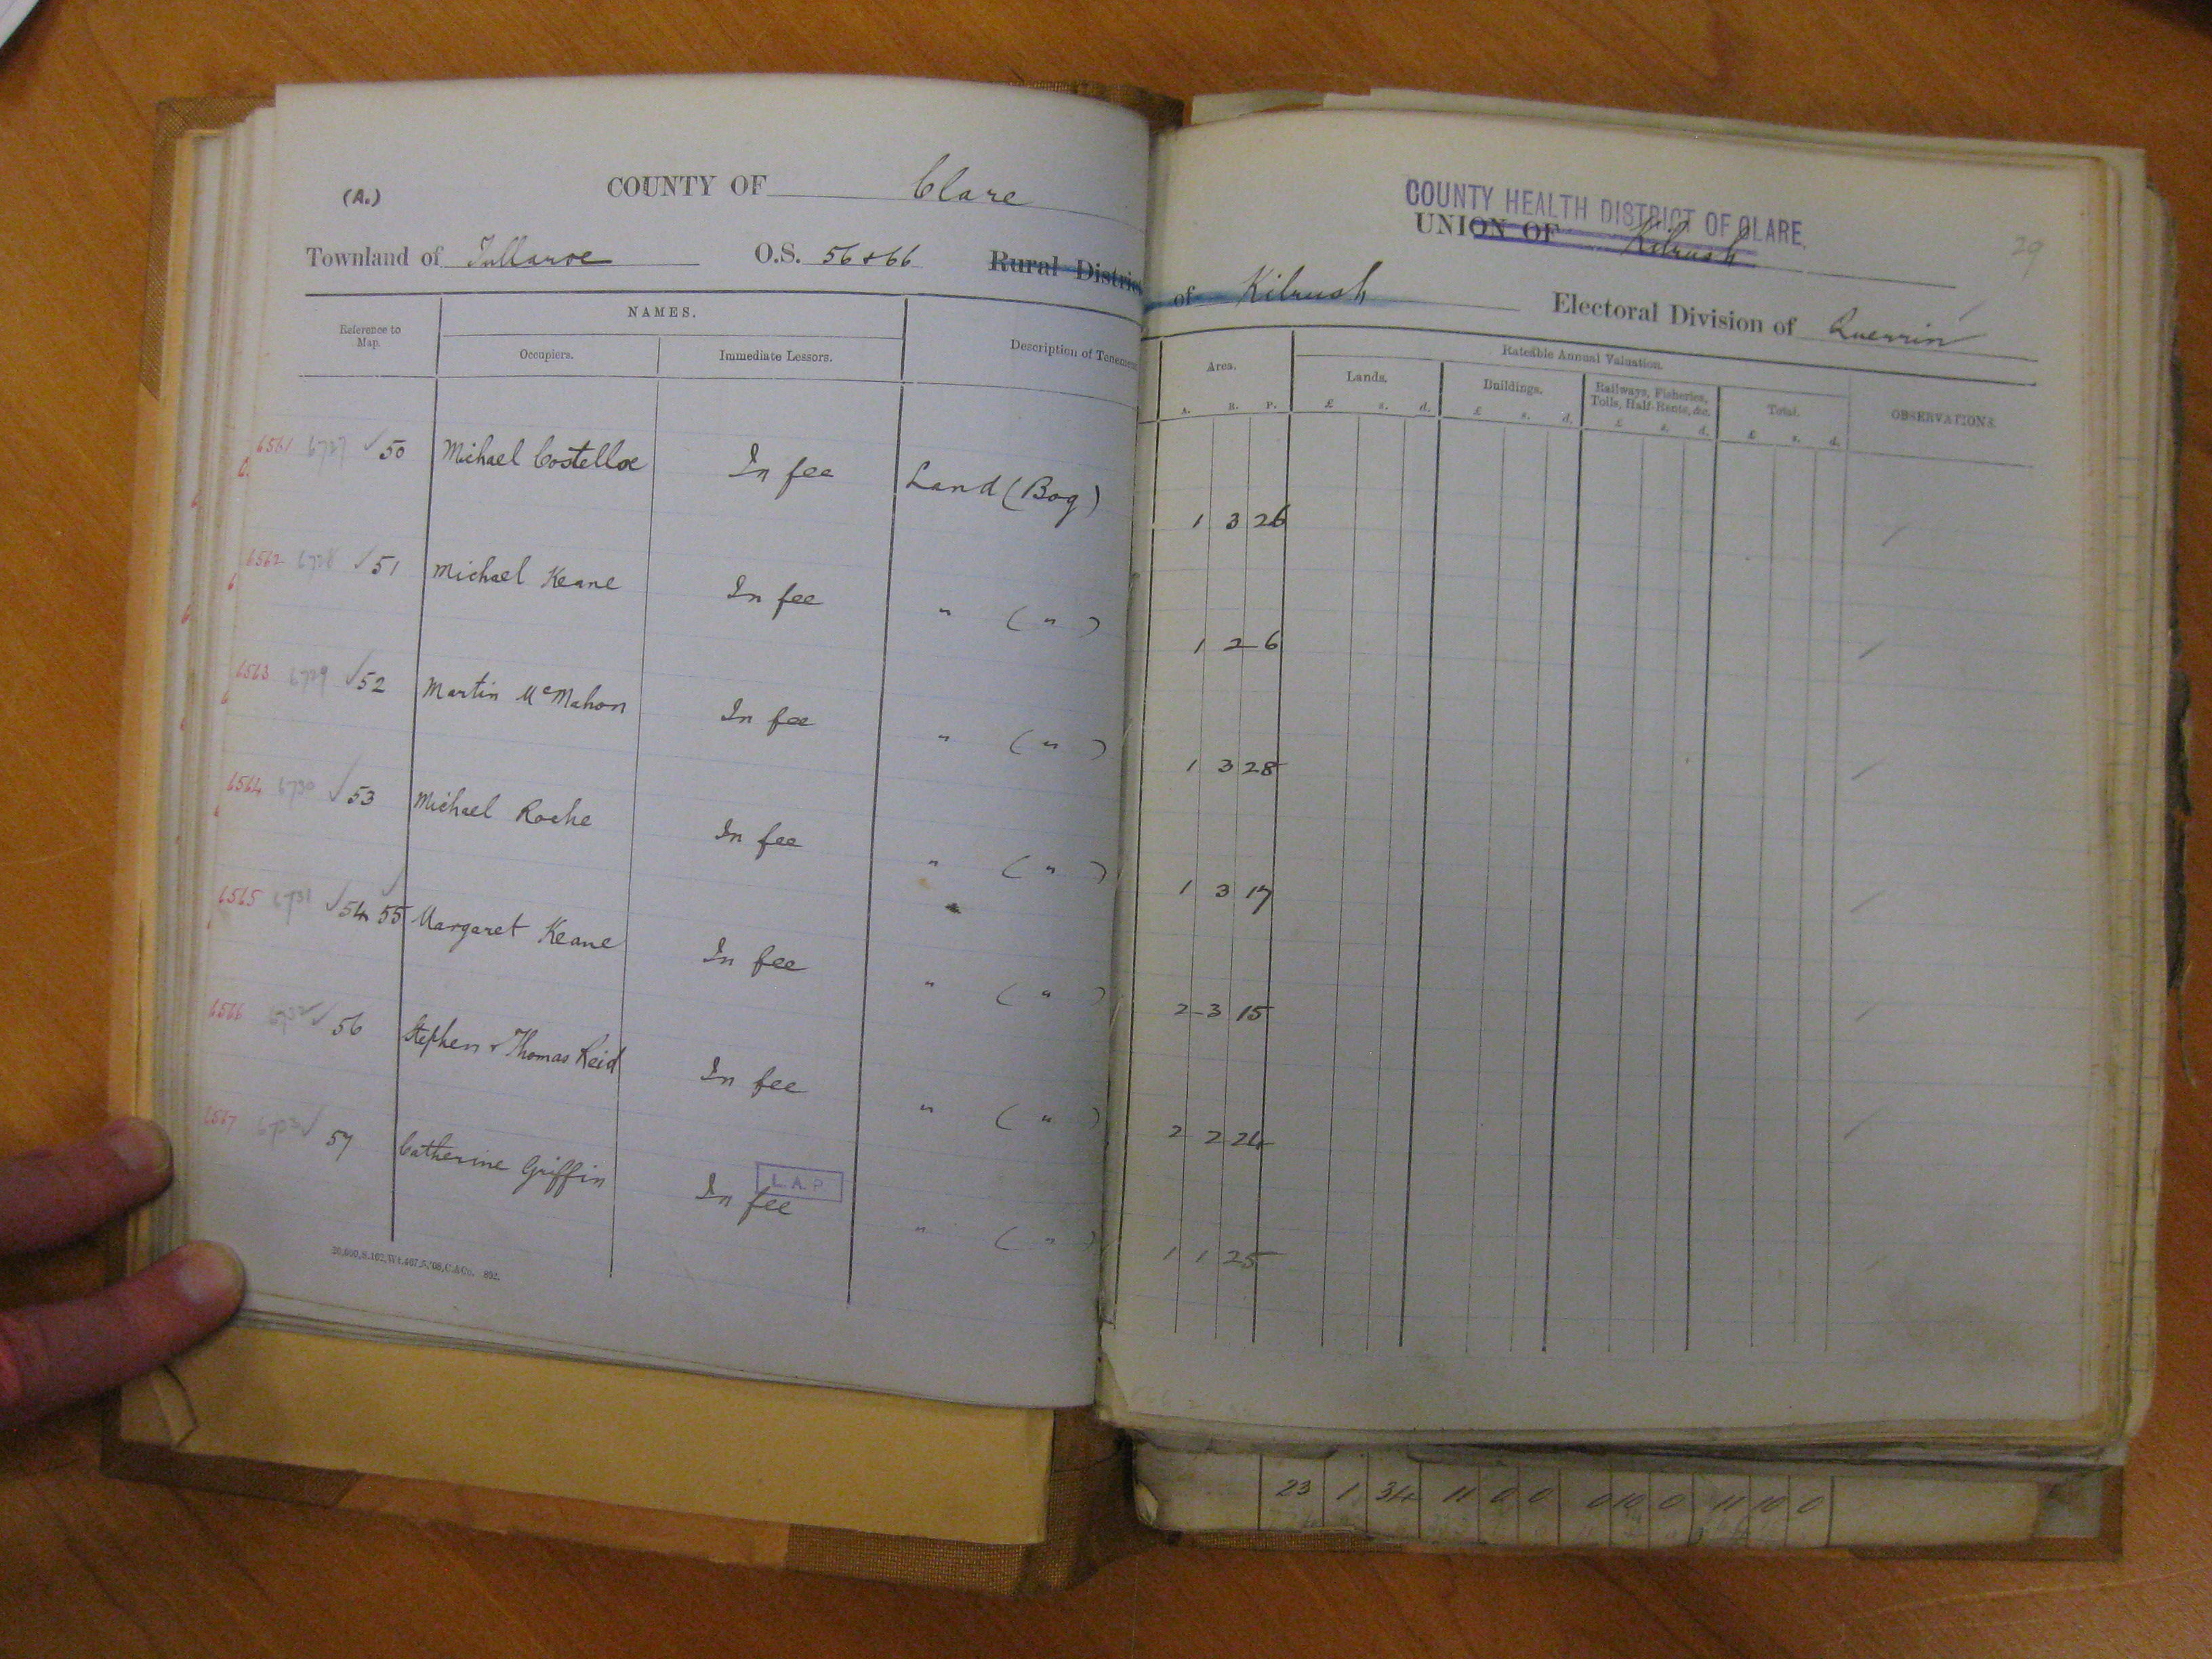 (A.) COUNTY OF Clare
COUNTY HEALTH DISTRICT OF CLARE.
UNION OF Kilrush
29
Townland of Tullaroe O.S. 56 & 66 Rural District of Kilrush Electoral Division of Querrin
Reference to Map.
NAMES.
Occupiers. Immediate Lessors.
Description of Tenement
Area.
A. R. P.
Rateable Annual Valuation.
Lands.
£ s. d.
Buildings.
£ s. d.
Railways, Fisheries, Tolls, Half-Rents, &c.
£ s. d.
Total.
£ s. d.
OBSERVATIONS.
6561 6727 ✓ 50 Michael Costelloe In fee Land (Bog) 1 3 26
6562 6728 ✓ 51 Michael Keane In fee " ( " ) 1 2 6
6563 6729 ✓ 52 Martin McMahon In fee " ( " ) 1 3 28
6564 6730 ✓ 53 Michael Roche In fee " ( " ) 1 3 17
6565 6731 ✓ 54 ✓ 55 Margaret Keane In fee " ( " ) 2 3 15
6566 6732 ✓ 56 Stephen & Thomas Reid In fee " ( " ) 2 2 24
6567 ✓ 57 Catherine Griffin In fee " ( " ) 1 1 25
L.A.P.
23 1 34 11 0 0 0 10 0 11 10 0